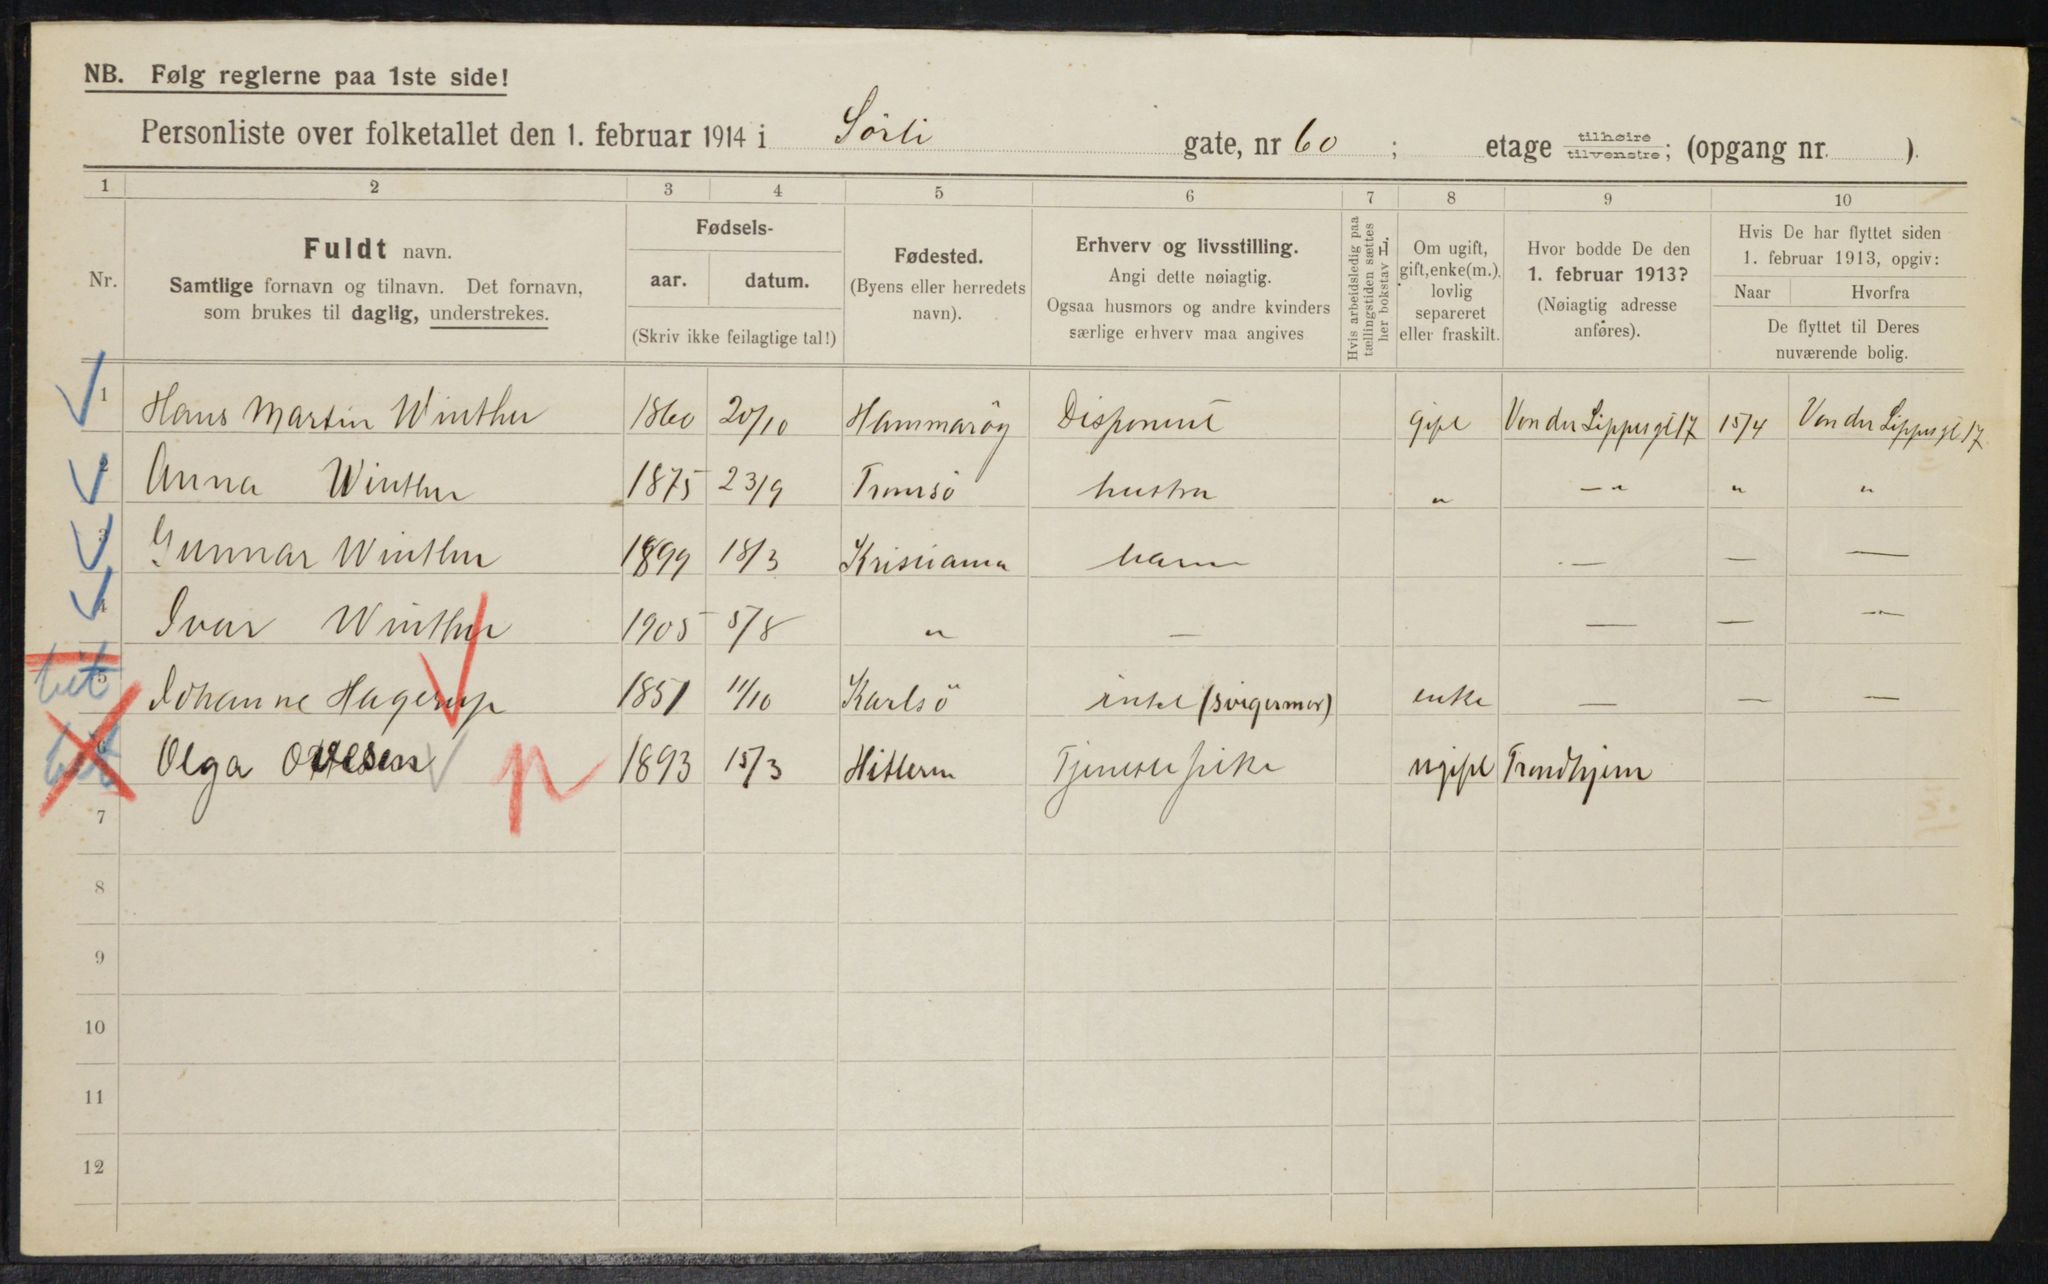 NB. Følg reglerne paa 1ste side!
Personliste over folketallet den 1. februar 1914 i Sörli gate, nr 60 ; etage tilhøire tilvenstre; (opgang nr. )
1 2 3 4 5 6 7 8 9 10
Nr.
Fuldt navn.
Samtlige fornavn og tilnavn. Det fornavn,
som brukes til daglig, understrekes.
Fødsels-
aar. datum.
(Skriv ikke feilagtige tal!)
Fødested.
(Byens eller herredets
navn).
Erhverv og livsstilling.
Angi dette nøiagtig.
Ogsaa husmors og andre kvinders
særlige erhverv maa angives
Hvis arbeidsledig paa
tællingstiden sættes
her bokstav L.
Om ugift,
gift, enke(m.).
lovlig
separeret
eller fraskilt.
Hvor bodde De den
1. februar 1913?
(Nøiagtig adresse
anføres).
Hvis De har flyttet siden
1. februar 1913, opgiv:
Naar Hvorfra
De flyttet til Deres
nuværende bolig.
1 Hans Martin Winther 1860 20/10 Hammaröy Disponent gift Von der Lippesgt 17 15/4 Von der Lippesgt 17
2 Anna Winther 1875 23/9 Tromsö hustru " — " " "
3 Gunnar Winther 1899 18/3 Kristiania barn — — —
4 Ivar Winther 1905 5/8 " — — — —
5 Johanne Hagerup 1851 11/10 Karlsö intet (svigermor) enke — — —
6 Olga Ovesen 1893 15/3 Hitteren Tjenestepike ugift Trondhjem
7
8
9
10
11
12